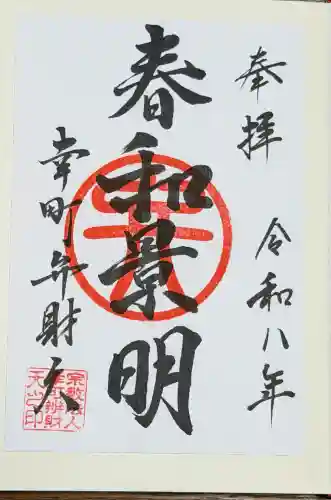 奉拝 令和八年
春和景明
幸町弁財天
宗教法人
幸町辨財
天之印